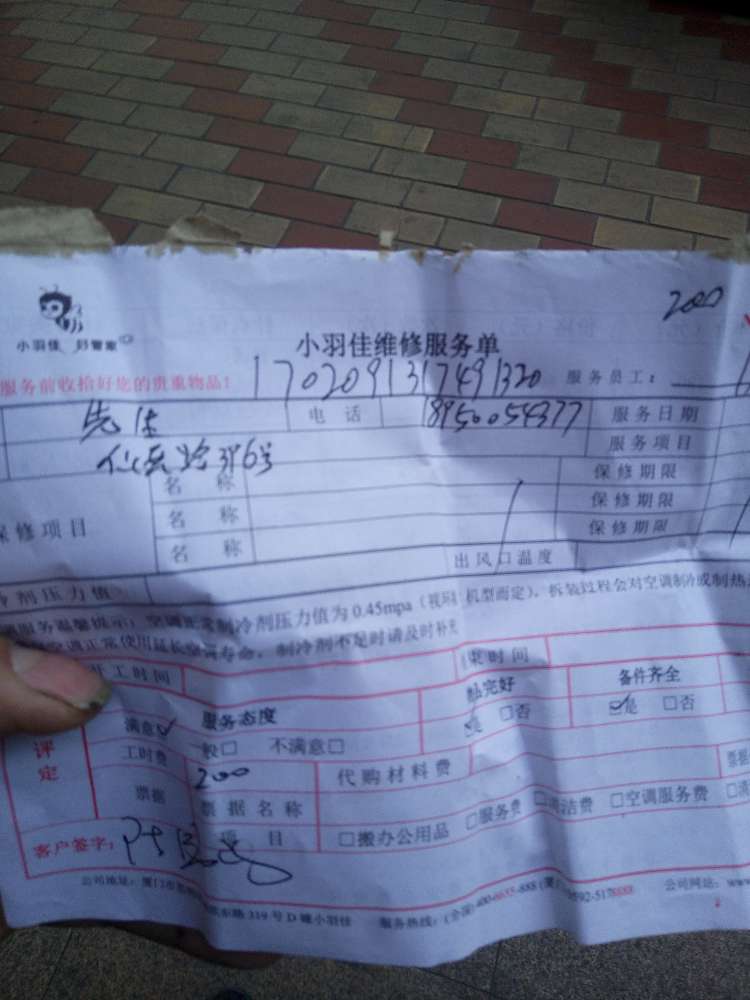 200
小羽佳 好管家
小羽佳维修服务单
服务前收拾好您的贵重物品！
1702091317491320
服务员工：
先生
电话
18950054377
服务日期
396号
服务项目
名称
保修期限
保修项目
名称
保修期限
名称
保修期限
出风口温度
剂压力值
服务温馨提示：空调正常制冷剂压力值为 0.45mpa（视环 机型而定），拆装过程会对空调制冷或制热
空调正常使用延长空调寿命，制冷剂不足时请及时补充
开工时间
束时间
评定
满意☑
服务态度
般□ 不满意□
完好
☑是 □否
备件齐全
☑是 □否
工时费
200
代购材料费
票据
票据名称
项目
□搬办公用品 □服务费 □清洁费 □空调服务费
客户签字：
公司地址：厦门市 路 319 号 D 幢小羽佳
服务热线：(全国) 400-6655-888 (厦 0592-5178888
公司网址：www